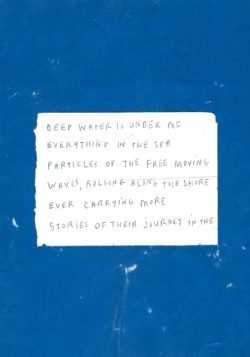 DEEP WATER IS UNDER ME
EVERYTHING IN THE SEA
PARTICLES OF THE FREE MOVING
WAVES, ROLLING ALONG THE SHORE
EVER CARRYING MORE
STORIES OF THEIR JOURNEY IN THE